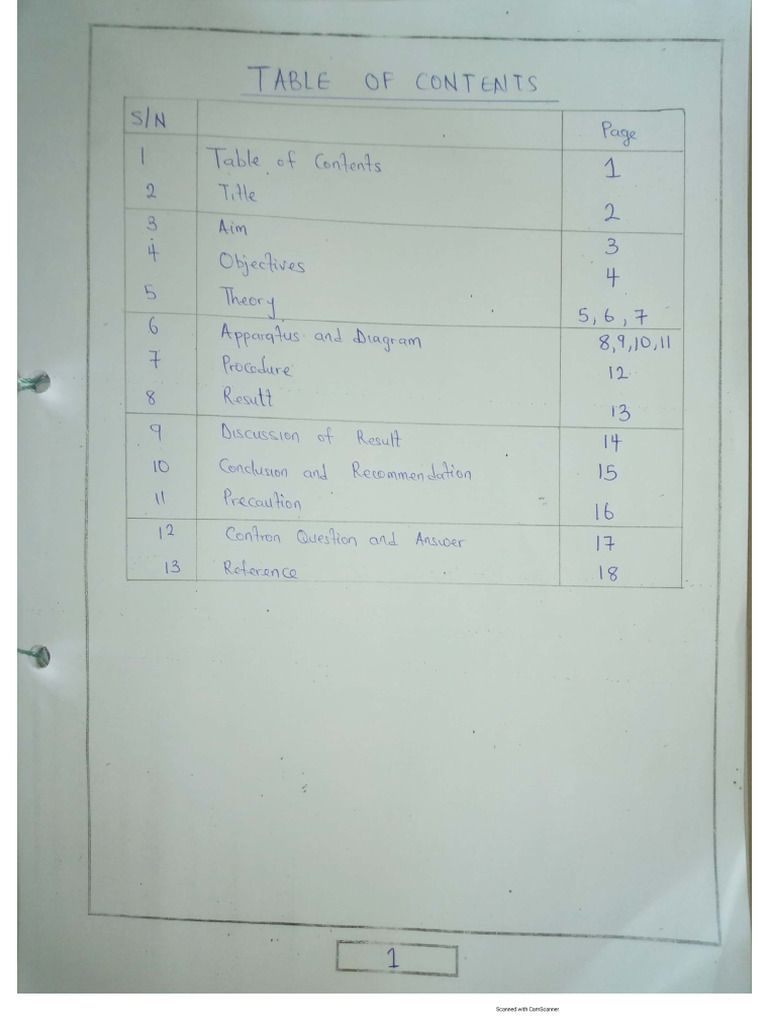 TABLE OF CONTENTS
S/N Page
1 Table of Contents 1
2 Title 2
3 Aim 3
4 Objectives 4
5 Theory 5, 6, 7
6 Apparatus and Diagram 8,9,10,11
7 Procedure 12
8 Result 13
9 Discussion of Result 14
10 Conclusion and Recommendation 15
11 Precaution 16
12 Contron Question and Answer 17
13 Reference 18
1
Scanned with CamScanner